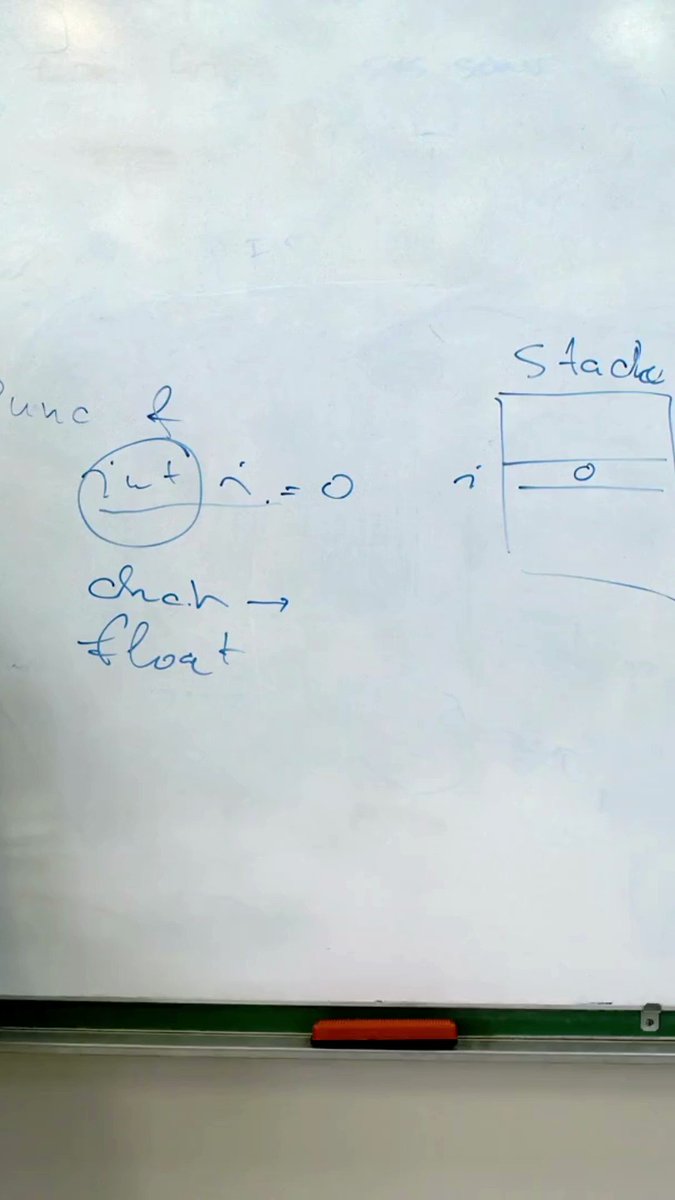 func f
int i = 0
char →
float
Stack
i 0